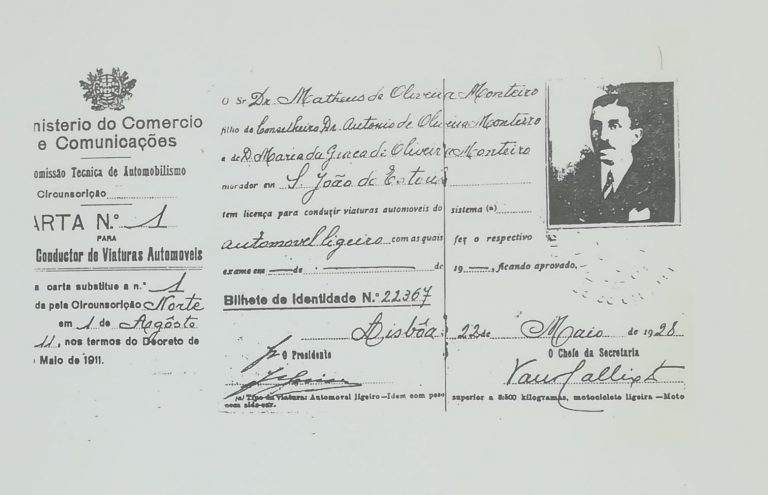 nisterio do Comercio
e Comunicações
omissão Tecnica de Automobilismo
Circunsorição
ARTA N.º 1
PARA
Conductor de Viaturas Automoveis
a carta substitue a n.º 1
da pela Circunsorição Norte
em 1 de Agôsto
11, nos termos do Decreto de
Maio de 1911.
O Sr Dr. Matheus de Oliveira Monteiro
filho de Conselheiro Dr. Antonio de Oliveira Monteiro
e de D. Maria da Graça de Oliveira Monteiro
morador em S. João do Estoril
tem licença para conduzir viaturas automoveis do sistema (a)
automovel ligeiro com as quais fez o respectivo
exame em — de — de 19 —, ficando aprovado.
Bilhete de Identidade N.º 22367
Lisbôa, 22 de Maio de 1928
O Presidente
O Chefe da Secretaria
(a) Tipo da viatura: Automovel ligeiro—Idem com peso superior a 3:500 kilogramas, motociclete ligeira—Moto
com side-car.